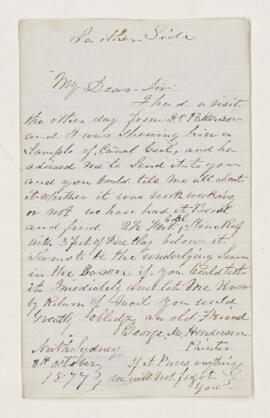 My Dear Sir
I had a visit
the other day from Dr Patterson
and I was shewing him a
Sample of Canal Coal, and he
advised me to Send it to you
and you Could tell me all about
it Whether it was worth working
or not we have had it Bored
and find 2½ Feet Coal,
with 3 feet of Fire Clay below it
the underlying Seam
in the Bason if you Would test
it Imediately and let me Know
by Return of Mail you Would
Greatly Oblidge an old Friend
George Mc Henderson
Painter
North Sydney
8th October
1877
If it Proves anything
we will not forget
You